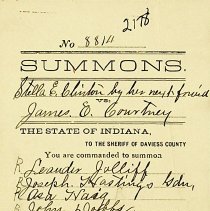 2178
No 8814
SUMMONS.
Stella E. Clinton by her next friend
vs.
James E. Courtney
THE STATE OF INDIANA,
TO THE SHERIFF OF DAVIESS COUNTY
You are commanded to summon
R Leander Jolliff
R Joseph Hastings Gdn,
R Asa Nasg
R John Dobbs